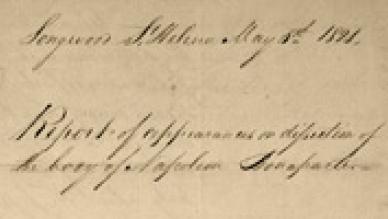 Longwood St Helena May 6th 1821.
Report of appearances on dissection of
the body of Napoleon Bonaparte